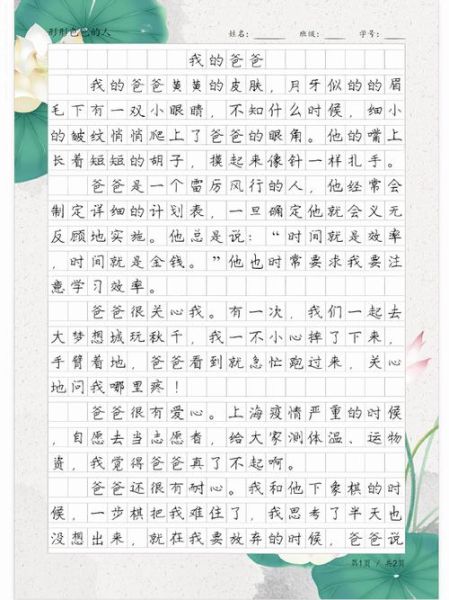 形形色色的人
姓名：
班级：
学号：
我的爸爸
我的爸爸黄黄的皮肤，月牙似的的眉
毛下有一双小眼睛，不知什么时候，细小
的皱纹悄悄爬上了爸爸的眼角。他的嘴上
长着短短的胡子，摸起来像针一样扎手。
爸爸是一个雷厉风行的人，他经常会
制定详细的计划表，一旦确定他就会义无
反顾地实施。他总是说：“时间就是效率
，时间就是金钱。”他也时常要求我要注
意学习效率。
爸爸很关心我。有一次，我们一起去
大梦想城玩秋千，我一不小心摔了下来，
手臂着地，爸爸看到就急忙跑过来，关心
地问我哪里疼！
爸爸很有爱心。上海疫情严重的时候
，自愿去当志愿者，给大家测体温、运物
资，我觉得爸爸真了不起啊。
爸爸还很有耐心。我和他下象棋的时
候，一步棋把我难住了，我思考了半天也
没想出来，就在我要放弃的时候，爸爸说
第1页 / 共2页